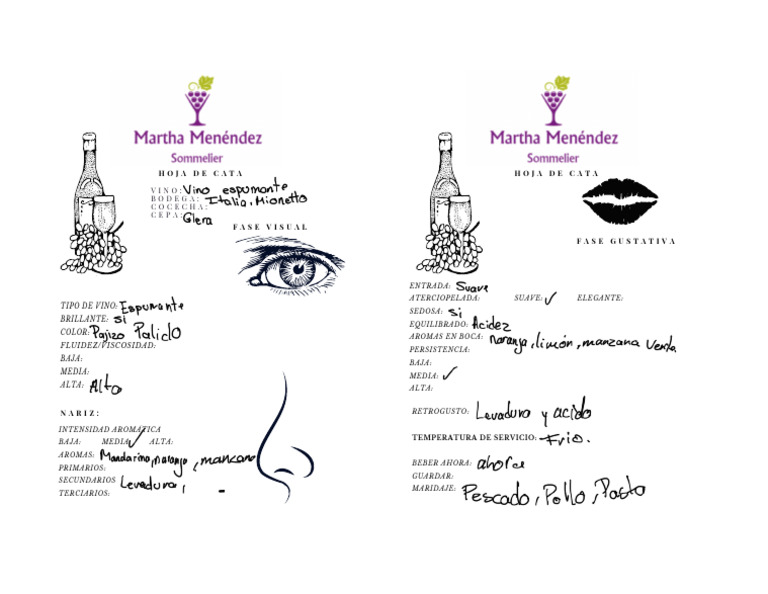 Martha Menéndez
Sommelier
HOJA DE CATA
VINO: Vino espumante
BODEGA: Italia, Mionetto
COCECHA:
CEPA: Glera
FASE VISUAL
TIPO DE VINO: Espumante
BRILLANTE: si
COLOR: Pajizo Palido
FLUIDEZ/VISCOSIDAD:
BAJA:
MEDIA:
ALTA: Alta
NARIZ:
INTENSIDAD AROMÁTICA
BAJA: MEDIA ✓ ALTA:
AROMAS: Mandarina, naranja, manzana
PRIMARIOS:
SECUNDARIOS Levadura, -
TERCIARIOS:
Martha Menéndez
Sommelier
HOJA DE CATA
FASE GUSTATIVA
ENTRADA: Suave
ATERCIOPELADA: SUAVE: ✓ ELEGANTE:
SEDOSA: Si
EQUILIBRADO: Acidez
AROMAS EN BOCA: naranja, limón, manzana verde.
PERSISTENCIA:
BAJA:
MEDIA: ✓
ALTA:
RETROGUSTO: Levadura y acido
TEMPERATURA DE SERVICIO: Frio.
BEBER AHORA: ahora
GUARDAR:
MARIDAJE: Pescado, Pollo, Pasta